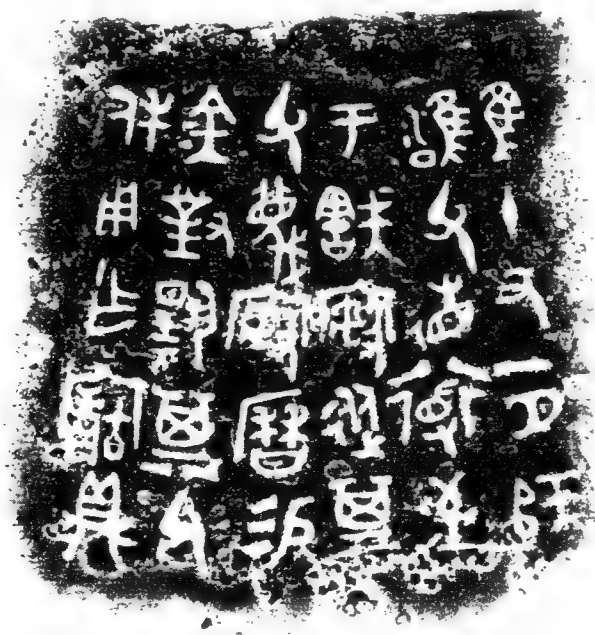 隹十又一月師
雝父省道至
于㝬從其
父蔑曆易
金對揚其父
休用乍寶鼎